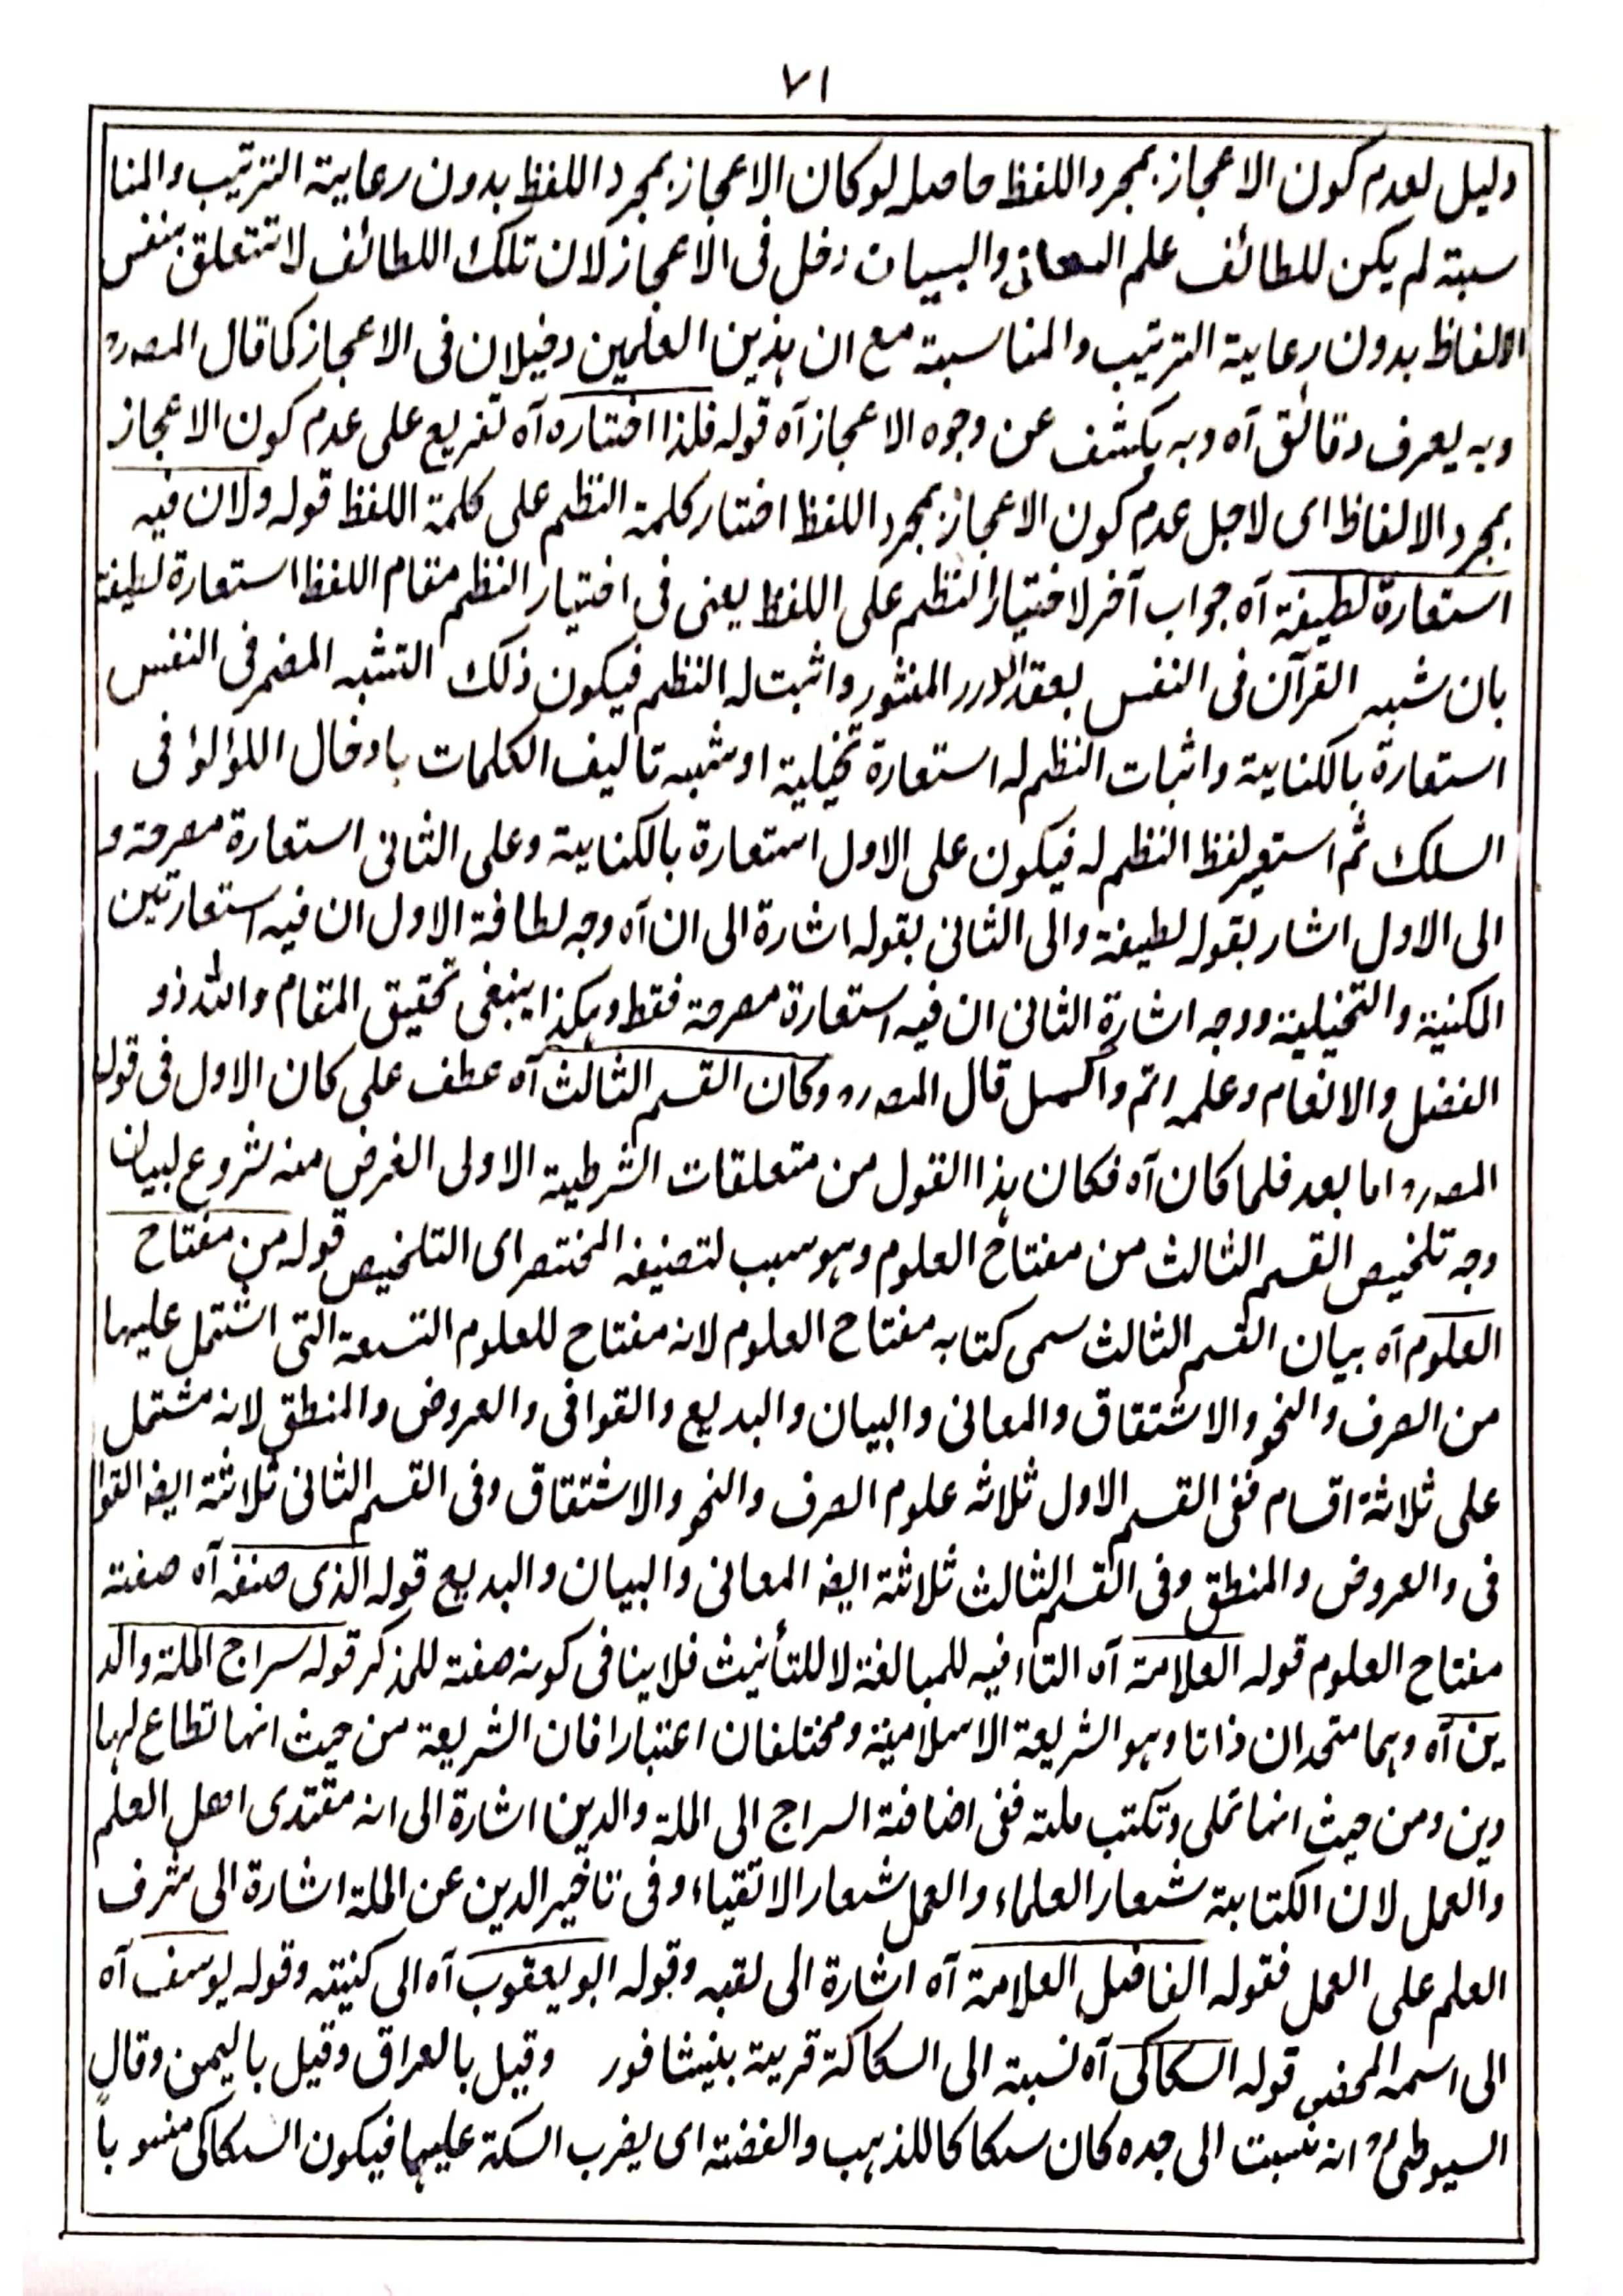 ٧١
دليل لعدم كون الاعجاز بمجرد اللفظ حاصله لو كان الاعجاز بمجرد اللفظ بدون رعاية الترتيب والمنا
سبة لم يكن للطائف علم المعانى والبيان دخل فى الاعجاز لان تلك اللطائف لا تتعلق بنفس
الالفاظ بدون رعاية الترتيب والمناسبة مع ان هذين العلمين دخيلان فى الاعجاز كما قال المصرح
وبه يعرف دقائق آه وبه يكشف عن وجوه الاعجاز آه قوله فلذا اختاره آه تفريع على عدم كون الاعجاز
بمجرد الالفاظ اى لاجل عدم كون الاعجاز بمجرد اللفظ اختار كلمة النظم على كلمة اللفظ قوله ولان فيه
استعارة لطيفة آه جواب آخر لاختيار النظم على اللفظ يعنى فى اختيار النظم مقام اللفظ استعارة لطيفة
بان شبه القرآن فى النفس بعقد الدرر المنثور واثبت له النظم فيكون ذلك التشبه المضمر فى النفس
استعارة بالكناية واثبات النظم له استعارة تخيلية او شبه تاليف الكلمات بادخال اللؤلؤ فى
السلك ثم استعير لفظ النظم له فيكون على الاول استعارة بالكناية وعلى الثانى استعارة مصرحة و
الى الاول اشار بقوله لطيفة والى الثانى بقوله اشارة الى ان آه وجه لطافة الاول ان فيه استعارتين
المكنية والتخيلية ووجه اشارة الثانى ان فيه استعارة مصرحة فقط وهكذا ينبغى تحقيق المقام والله ذو
الفضل والانعام وعلمه اتم واكمل قال المصرح وكان القسم الثالث آه عطف على كان الاول فى قول
المصرح اما بعد فلما كان آه فكان هذا القول من متعلقات الشرطية الاولى الغرض منه شروع لبيان
وجه تلخيص القسم الثالث من مفتاح العلوم وهو سبب لتصنيفه المختصر اى التلخيص قوله من مفتاح
العلوم آه بيان القسم الثالث سمى كتابه مفتاح العلوم لانه مفتاح للعلوم التسعة التى اشتمل عليها
من الصرف والنحو والاشتقاق والمعانى والبيان والبديع والقوافى والعروض والمنطق لانه مشتمل
على ثلاثة اقسام ففى القسم الاول ثلاثه علوم الصرف والنحو والاشتقاق وفى القسم الثانى ثلاثة ايضا القوا
فى والعروض والمنطق وفى القسم الثالث ثلاثة ايضا المعانى والبيان والبديع قوله الذى صنفه آه صفته
مفتاح العلوم قوله العلامة آه التاء فيه للمبالغة لا للتأنيث فلا ينافى كونه صفته للمذكر قوله سراج الملة والد
ين آه وهما متحدان ذاتا وهو الشريعة الاسلامية ومختلفان اعتبارا فان الشريعة من حيث انها تطاع لها
دين ومن حيث انها تملى وتكتب ملة ففى اضافة السراج الى الملة والدين اشارة الى انه مقتدى اهل العلم
والعمل لان الكتابة شعار العلماء والعمل شعار الاتقياء وفى تاخير الدين عن الملة اشارة الى شرف
العلم على العمل فقوله الفاضل العلامة آه اشارة الى لقبه وقوله ابو يعقوب آه الى كنيته وقوله يوسف آه
الى اسمه المحض قوله السكاكى آه نسبة الى السكاكة قرية بنيشافور وقيل بالعراق وقيل باليمن وقال
السيوطى ؒ انه نسبت الى جده كان سكاكا للذهب والفضة اى يضرب السكة عليهما فيكون السكاكى منسوباً